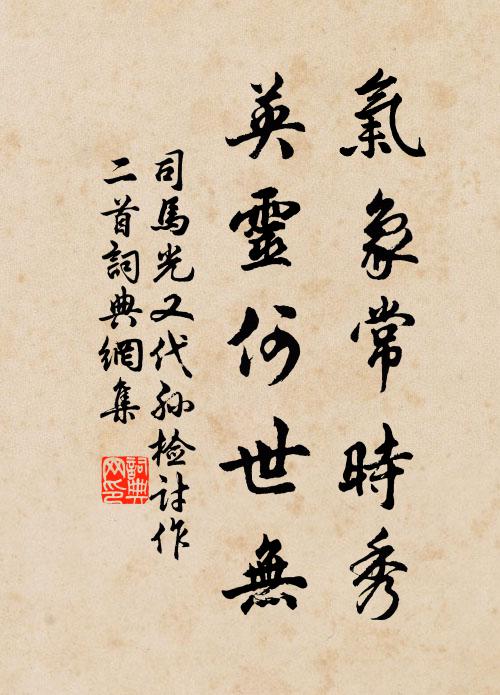 氣象常時秀
英靈何世無
司馬光又代孫檢討作
二首詞典網集
詞典
网印